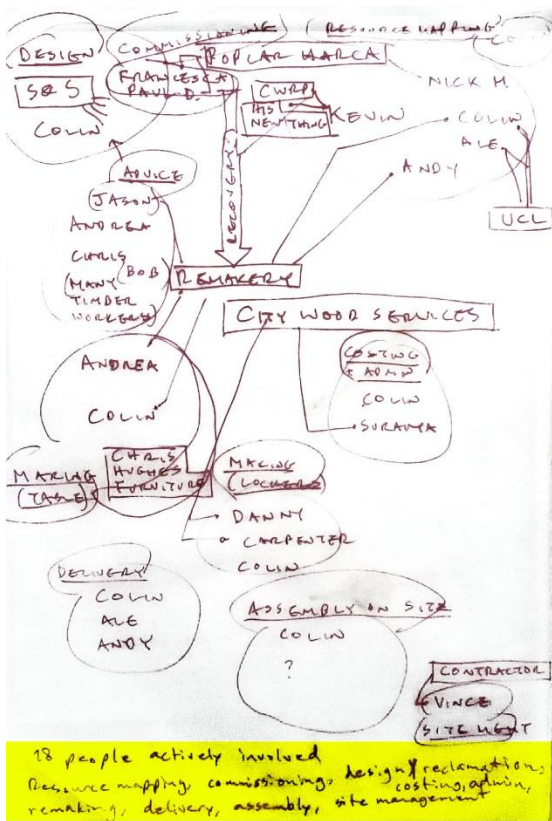 COMMISSIONING
RESOURCE MAPPING
DESIGN
POPLAR HARCA
FRANCESCA
PAUL D.
S&S
COLIN
NICK H.
CWRP
HIS
NEW THING
KEVIN
COLIN
ALE
ANDY
UCL
RECOVERY
ADVICE
(JASON)
ANDREA
CHRIS
BOB
(MANY
TIMBER
WORKERS)
REMAKERY
CITY WOOD SERVICES
COSTING
+ ADMN
COLIN
SURAYYA
ANDREA
COLIN
CHRIS
HUGHES
FURNITURE
MAKING
(TABLE)
MAKING
(LOCKERS)
DANNY
CARPENTER
COLIN
DELIVERY
COLIN
ALE
ANDY
ASSEMBLY ON SITE
COLIN
?
CONTRACTOR
VINCE
SITE MGMT
18 people actively involved
Resource mapping, commissioning, design/reclamation,
costing, admin,
remaking, delivery, assembly, site management